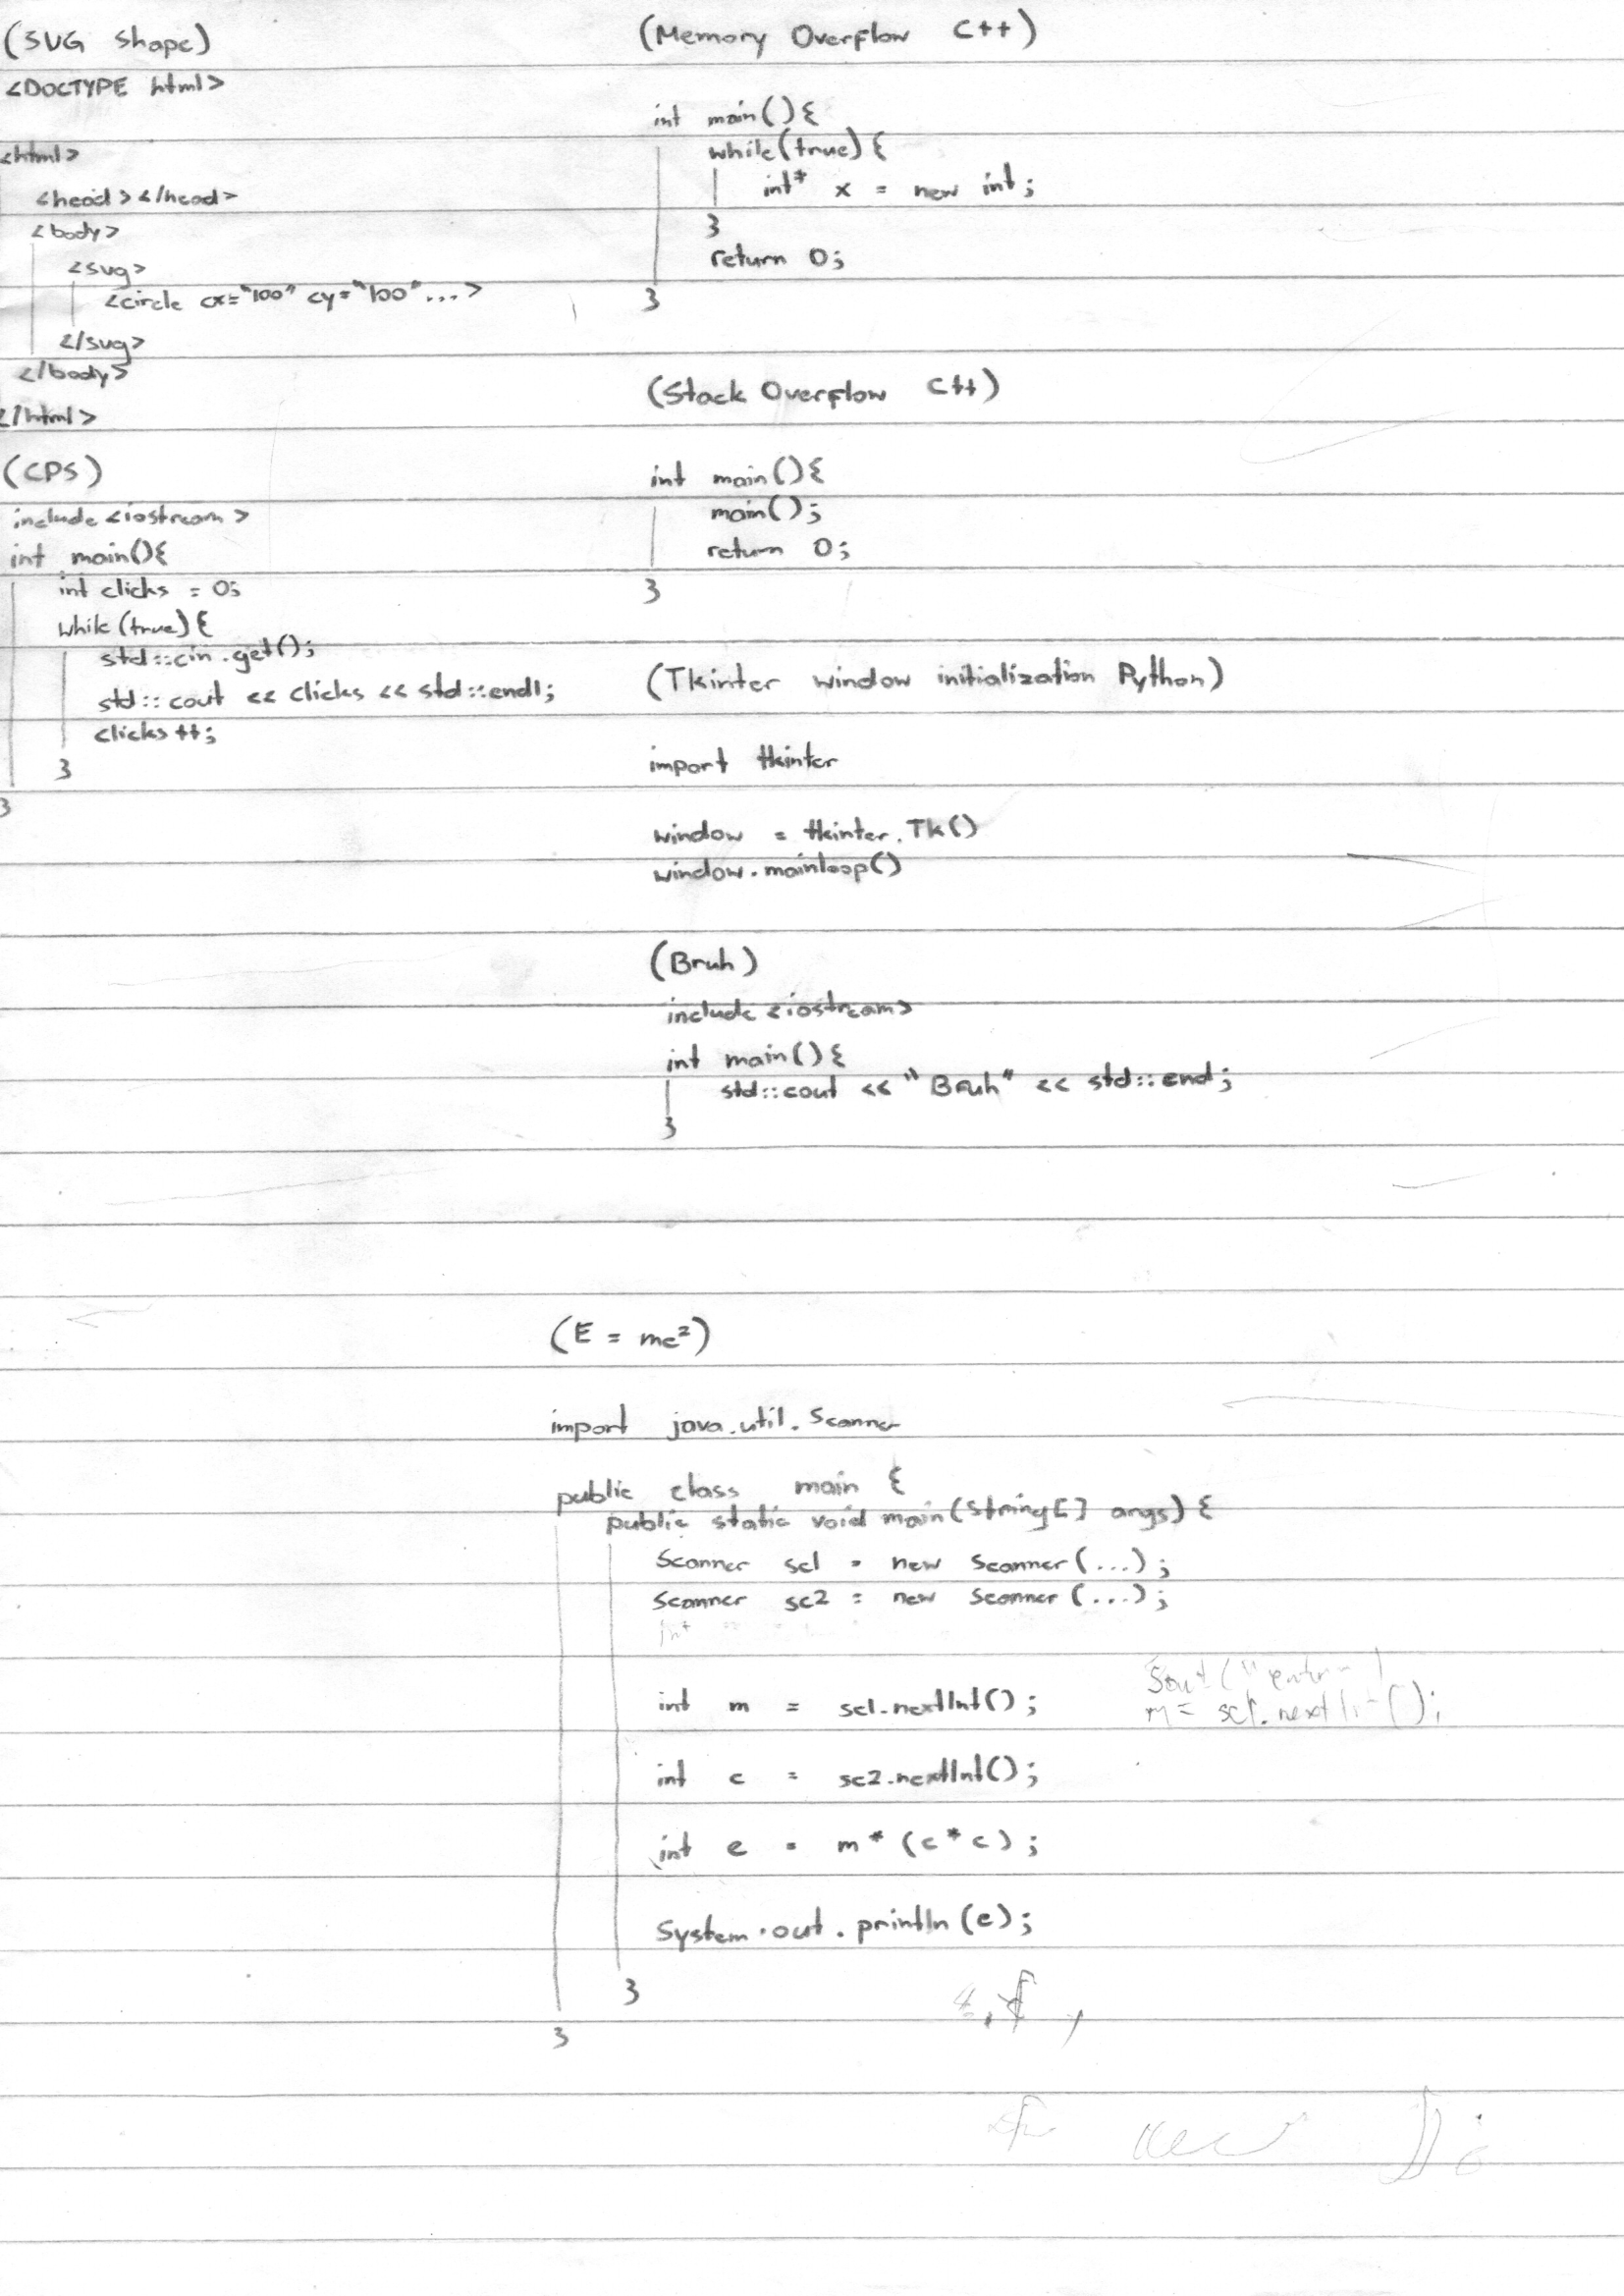 (SVG Shape)
<DOCTYPE html>
<html>
<head></head>
<body>
<svg>
<circle cx="100" cy="100"...>
</svg>
</body>
</html>
(CPS)
include <iostream>
int main(){
int clicks = 0;
while(true){
std::cin.get();
std::cout << clicks << std::endl;
clicks++;
}
}
(Memory Overflow C++)
int main(){
while(true){
int* x = new int;
}
return 0;
}
(Stack Overflow C++)
int main(){
main();
return 0;
}
(Tkinter window initialization Python)
import tkinter
window = tkinter.Tk()
window.mainloop()
(Bruh)
include <iostream>
int main(){
std::cout << "Bruh" << std::end;
}
(E = mc²)
import java.util.Scanner
public class main {
public static void main(String[] args) {
Scanner sc1 = new Scanner(...);
Scanner sc2 = new Scanner(...);
int
int m = sc1.nextInt();
Sout("
m = sc1.nextInt();
int c = sc2.nextInt();
int e = m*(c*c);
System.out.println(e);
}
}